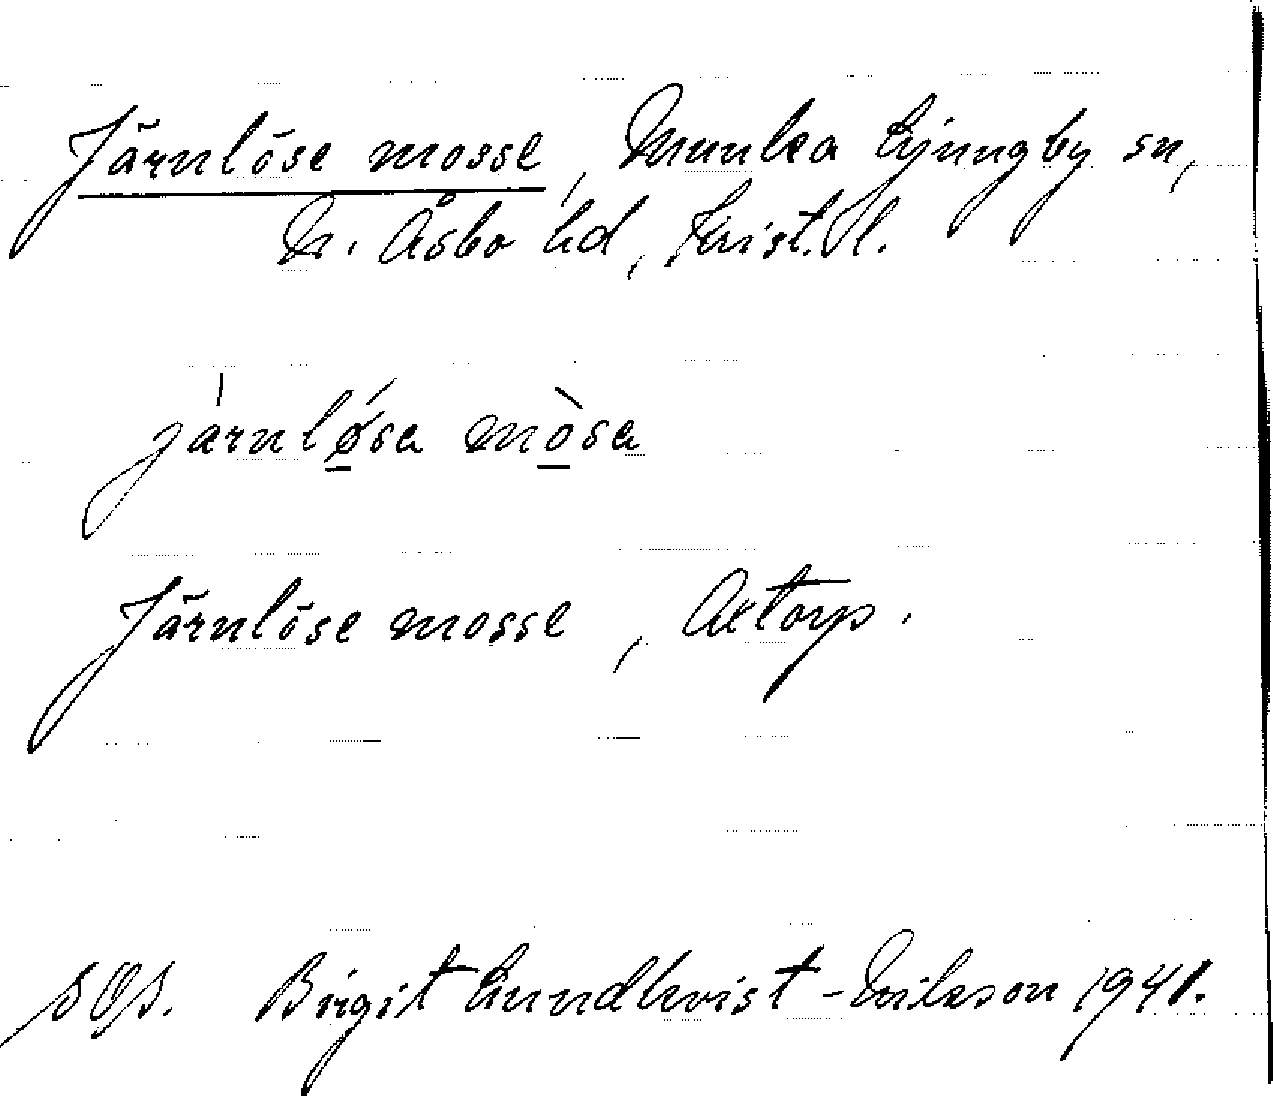 Järnlöse mosse, Munka Ljungby sn,
N. Åsbo hd, Krist. l.
járnlǿ̱sa mò̱sa
Järnlöse mosse, Axtorp.
SOS. Birgit Lundkvist-Nilsson 1941.